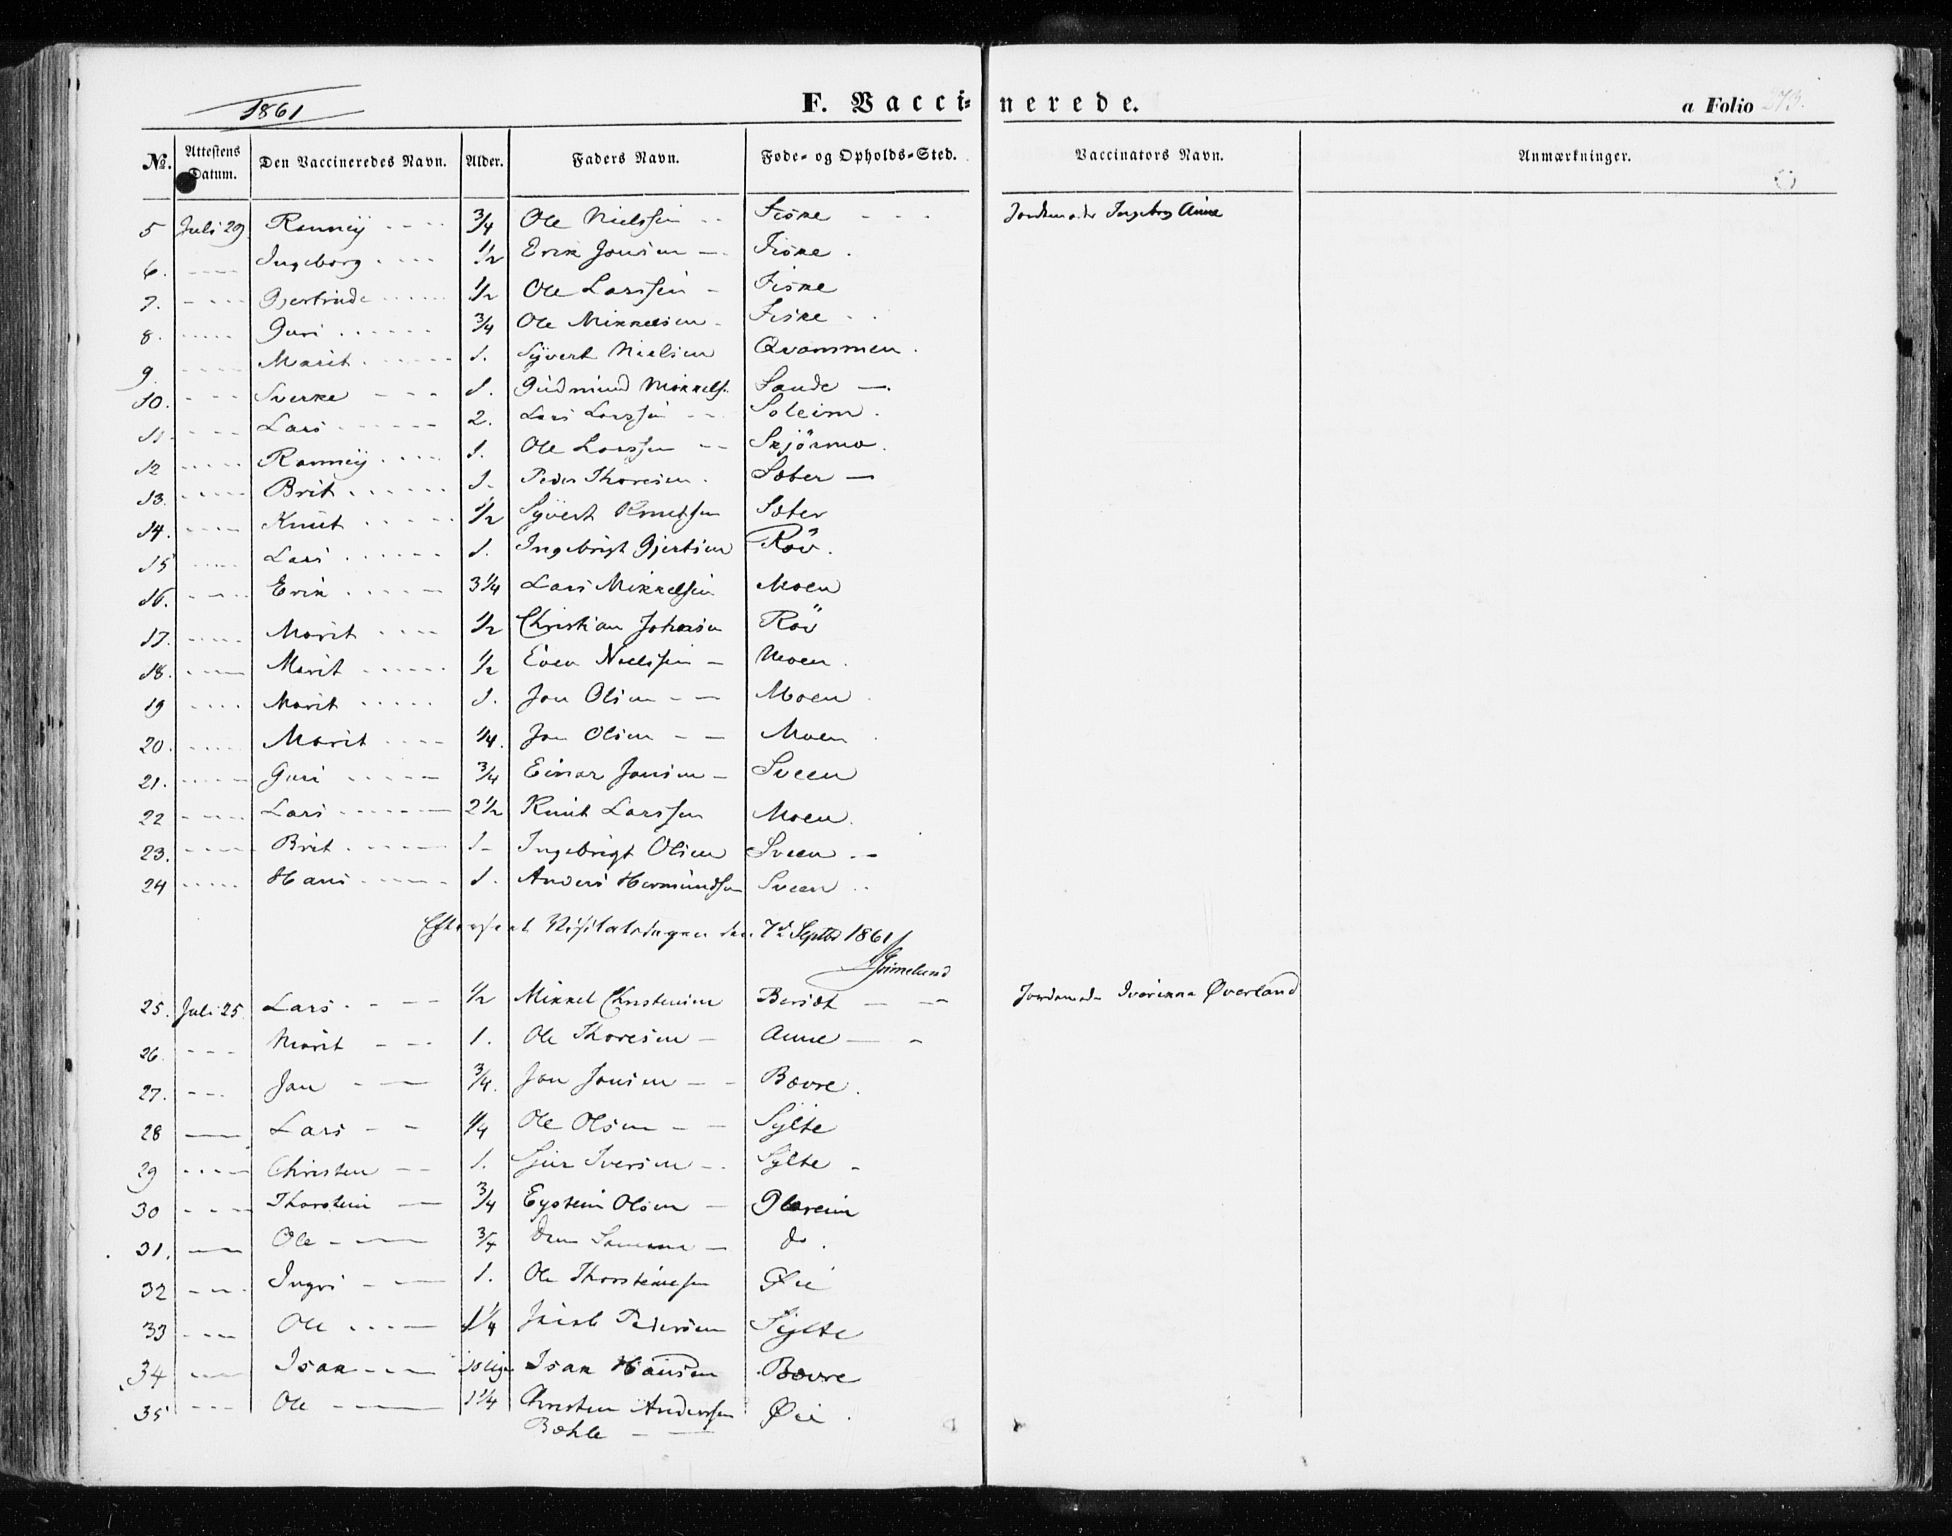 1861
F. Vaccinerede.
a Folio 273.
№. Attestens Datum. Den Vaccineredes Navn. Alder. Faders Navn. Fode- og Opholds-Sted. Vaccinators Navn. Anmærkninger.
5 Juli 29. Ranneÿ 3/4 Ole Nielssen Fiske Jordemoder Ingebor Aune
6. Ingeborg 1/2 Erik Jonsen Fiske.
7. Gjertrude 1/2 Ole Larssen Fiske
8. Guri 3/4 Ole Mikkelsen Fiske
9. Marit 1. Sÿvert Nielsen Qvammen.
10. Sverke 1. Gudmund Mikkels. Sande
11. Lars 2. Lars Larssen Soleim.
12 Ranneÿ 1. Ole Larssen Skjørmo.
13. Brit 1. Peder Thoresen. Sæter
14. Knut 1/2 Sÿvert Knutsen Sæter
15 Lars 1. Ingebrigt Gjertsen Röv.
16. Erik 3 1/4 Lars Mikkelsen Moen
17. Marit 1/2 Christian Johansen Röv
18. Marit 1/2 Even Nielssen Moen.
19 Marit 1. Jon Olsen Moen
20. Marit 1/4. Jon Olsen Moen
21. Guri 3/4 Einar Jonsen Sveen
22 Lars 2 1/2 Knut Larssen Moen.
23. Brit 1 Ingebrigt Olsen Sveen
24 Hans 1. Anders Hermundsen Sveen
Efterseet Visitatsdagen den 7d Septbr 1861
Grimelund
25. Juli 25. Lars 1/2 Mikkel Christensen Bersæt Jordemoder Iverinna Øverland
26. Marit 1. Ole Thoresen Aune
27. Jon 3/4. Jon Jonsen Bævre.
28 Lars 1/4 Ole Olsen Sÿlte
29 Christen 1. Sjur Iversen Sÿlte
30 Thorstein 3/4 Eystein Olsen Glærem
31. Ole 3/4 Den Samme do.
32 Ingri 1. Ole Thorsteinsen Øie
33 Ole 1 1/4 Jacob Pedersen Sÿlte
34 Isak Isak Hansen Bævre
35 Ole 1 1/4 Christen Anderssen Øie
Bæhle